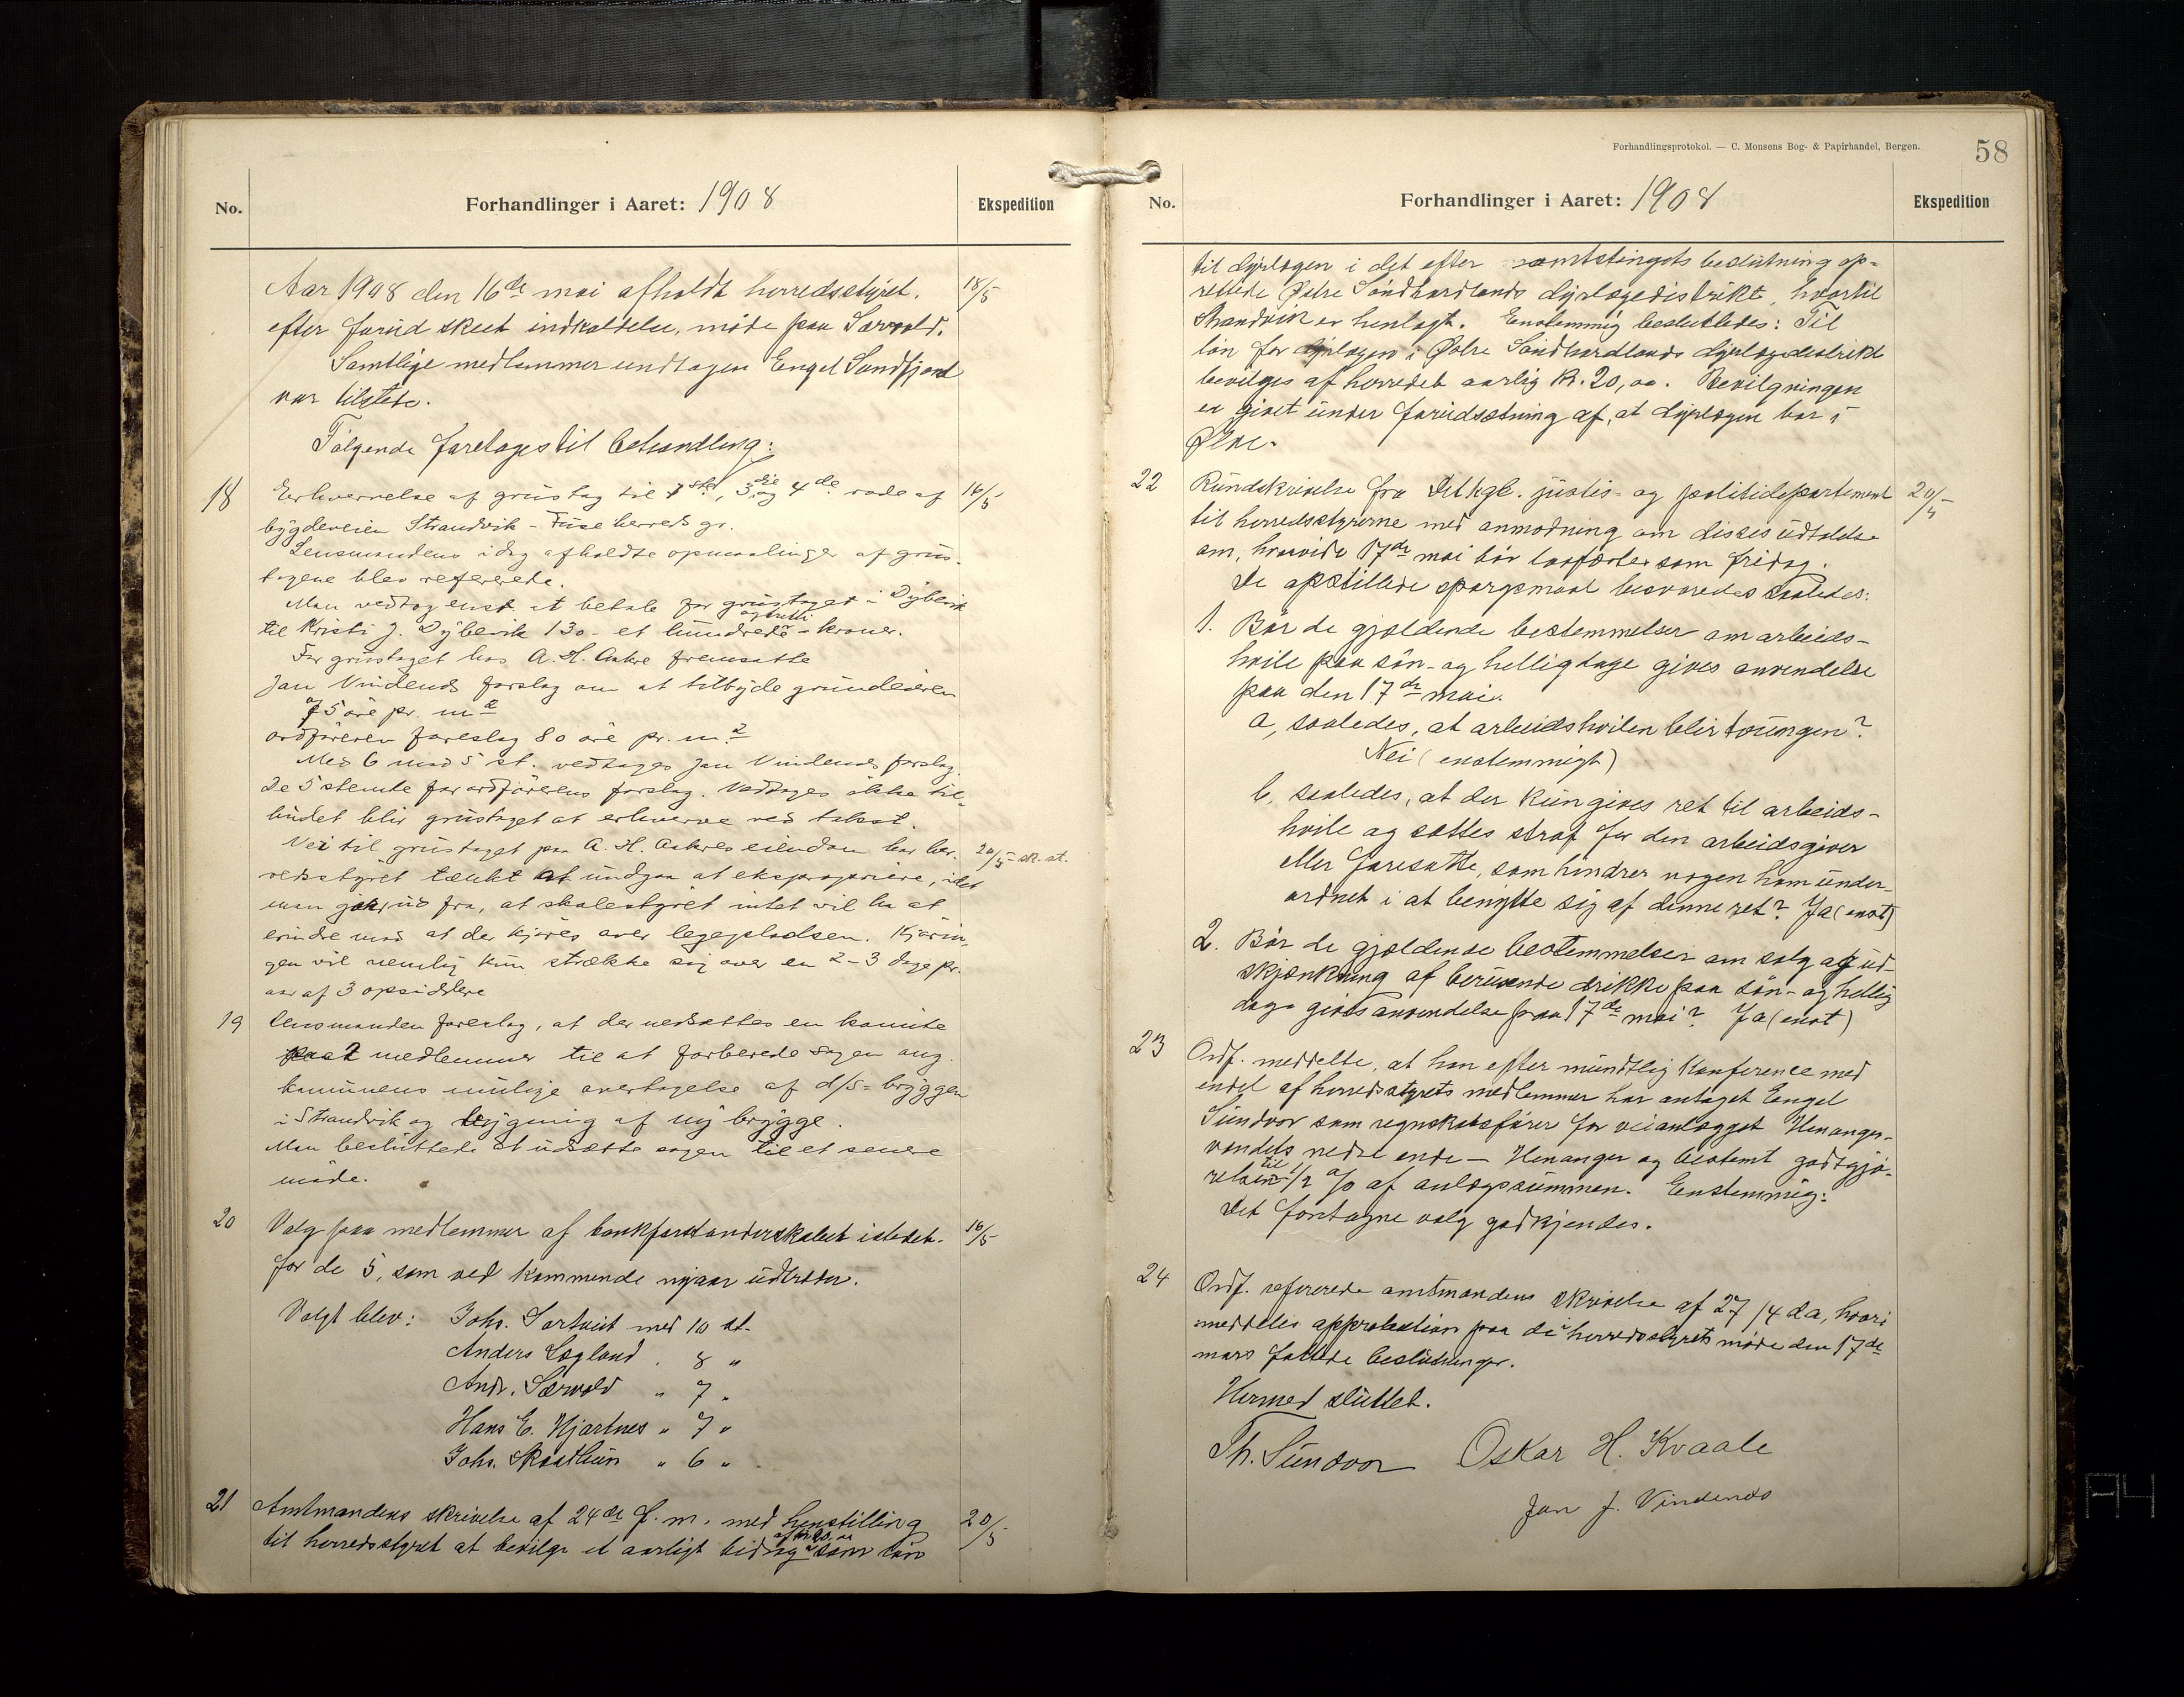 No.
Forhandlinger i Aaret: 1908
Ekspedition
Aar 1908 den 16de mai afholdt herredsstyret. 18/5
efter forud skeet indkaldelse, møde paa Særvold.
Samtlige medlemmer undtagen Engel Sundfjord
var tilstede.
Følgende foretages til behandling:
18 Erhvervelse af grustag til 1ste, 3die og 4de rode af 16/5
bygdeveien Strandvik - Fuse herreds gr.
Lensmandens idag afholdte opmaalinger af grus-
tagene blev refererede.
Man vedtog enst. at betale for grustaget i Dybevik
til Kristi J. Dybevik 130 - et hundrede og tretti - kroner.
For grustaget hos A. H. Aakre fremsatte
Jan Vindenes forslag om at tilbyde grundeieren
75 øre pr. m2
ordføreren foreslog 80 øre pr. m.2
Med 6 mod 5 st. vedtages Jan Vindenes forslag.
De 5 stemte for ordførerens forslag. Vedtages ikke til-
budet blir grustaget at erhverve ved takst.
Vei til grustaget paa A. H. Aakres eiendom har her- 20/5 sk. st.
redsstyret tænkt at undgaa at ekspropriere, idet
man gaar ud fra, at skolestyret intet vil ha at
erindre mod at der kjøres over legepladsen. Kjørin-
gen vil nemlig kun strække sig over en 2-3 dage pr.
aar af 3 opsiddere
19 Lensmanden foreslog, at der nedsattes en komite
paa 2 medlemmer til at forberede sagen ang.
kommunens mulige overtagelse af d/s-bryggen
i Strandvik og bygning af ny brygge.
Man besluttede at udsætte sagen til et senere
møde.
20 Valg paa medlemmer af bankforstanderskabet istedet- 16/5
for de 5, som ved kommende nyaar udtræder.
Valgt blev: Johs. Sørtveit med 10 st.
Anders Légland " 8 "
Andr. Særvold " 7 "
Hans E. Hjartnes " 7 "
Johs. Skaathun " 6 "
21 Amtmandens skrivelse af 24de f. m. med henstilling 20/5
til herredsstyret at bevilge et aarligt bidrag af kr. 20,00 som løn
Forhandlingsprotokol. — C. Monsens Bog- & Papirhandel, Bergen.
58
No.
Forhandlinger i Aaret: 1908
Ekspedition
til dyrlægen i det efter amtstingets beslutning op-
rettede Østre Søndhordlands dyrlægedistrikt, hvortil
Strandvik er henlagt. Enstemmig besluttedes: Til
løn for dyrlægen i Østre Søndhordlands dyrlægedistrikt
bevilges af herredet aarlig kr. 20,00. Bevilgningen
er givet under forudsætning af, at dyrlægen bor i
Ølve.
22 Rundskrivelse fra Det kgl. justis- og politidepartement 20/5
til herredsstyrerne med anmodning om disses udtalelse
om, hvorvidt 17de mai bør lovfæstes som fridag.
De opstillede spørgsmaal besvaredes saaledes:
1. Bør de gjældende bestemmelser om arbeids-
hvile paa søn- og helligdage gives anvendelse
paa den 17de mai.
a, saaledes, at arbeidshvilen blir tvungen?
Nei (enstemmigt)
b, saaledes, at der kun gives ret til arbeids-
hvile og sættes straf for den arbeidsgiver
eller foresatte, som hindrer nogen ham under-
ordnet i at benytte sig af denne ret? Ja (enst)
2. Bør de gjældende bestemmelser om salg og ud-
skjænkning af berusende drikke paa søn- og hellig
dage gives anvendelse paa 17de mai? Ja (enst)
23 Ordf. meddelte, at han efter mundtlig konference med
endel af herredsstyrets medlemmer har antaget Engel
Sundvor som regnskabsfører for veianlægget Henanger-
vandets nedre ende — Henanger og bestemt godtgjø-
relsen til 1/2 % af anlægssummen. Enstemmig:
Det foretagne valg godkjendes.
24 Ordf. refererede amtmandens skrivelse af 27/4 d.a., hvori
meddeles approbation paa de i herredsstyrets møde den 17de
mars fattede beslutninger.
Hermed sluttet.
Th. Sundvor Oskar H. Kvaale
Jan J. Vindenes